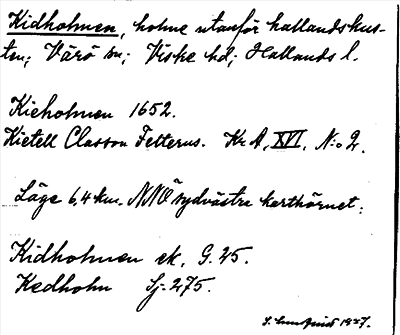 Kidholmen, holme utanför hallandskus-
ten; Värö sn; Viske hd; Hallands l.
Kieholmen 1652.
Kietell Classon Felterus. Kr A, XVI, N:o 2.
Läge 6,4 km. NNO sydvästra karthörnet.
Kidholmen ek. G. 25.
Kedholm Sj. 275.
S. 1927.